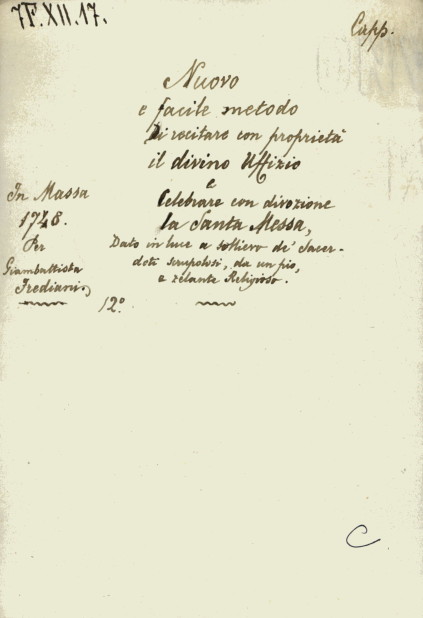 7F.XII.17.
Capp.
Nuovo
e facile metodo
Di recitare con proprietà
il divino Uffizio
e
Celebrare con divozione
la Santa Messa,
Dato in luce a sollievo de' Sacer-
doti scrupolosi, da un pio,
e zelante Religioso.
In Massa
1748.
Per
Giambattista
Frediani
12º
C